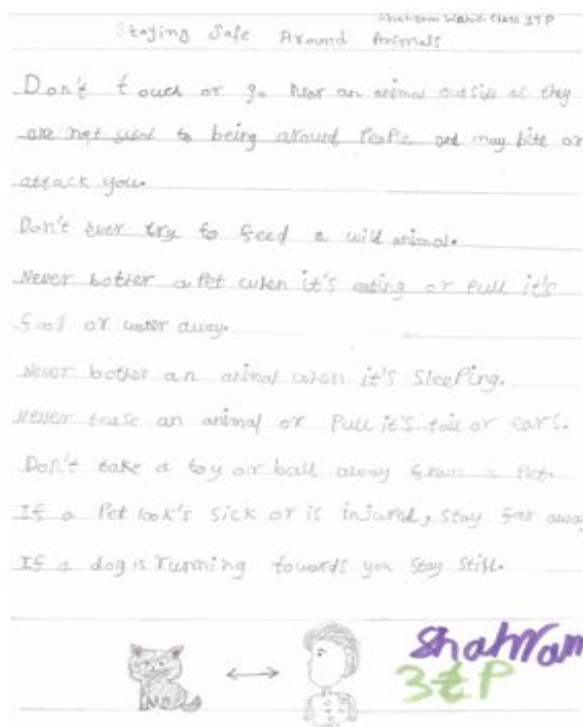 Shahram Wahid. Class 3TP
Staying Safe Around Animals
Don't touch or go near an animal outside as they
are not used to being around people and may bite or
attack you.
Don't ever try to feed a wild animal.
Never bother a pet when it's eating or pull it's
food or water away.
Never bother an animal when it's sleeping.
Never tease an animal or pull it's tail or ears.
Don't take a toy or ball away from a pet.
If a pet look's sick or is injured, stay far away
If a dog is running towards you stay still.
Shahram
3tP